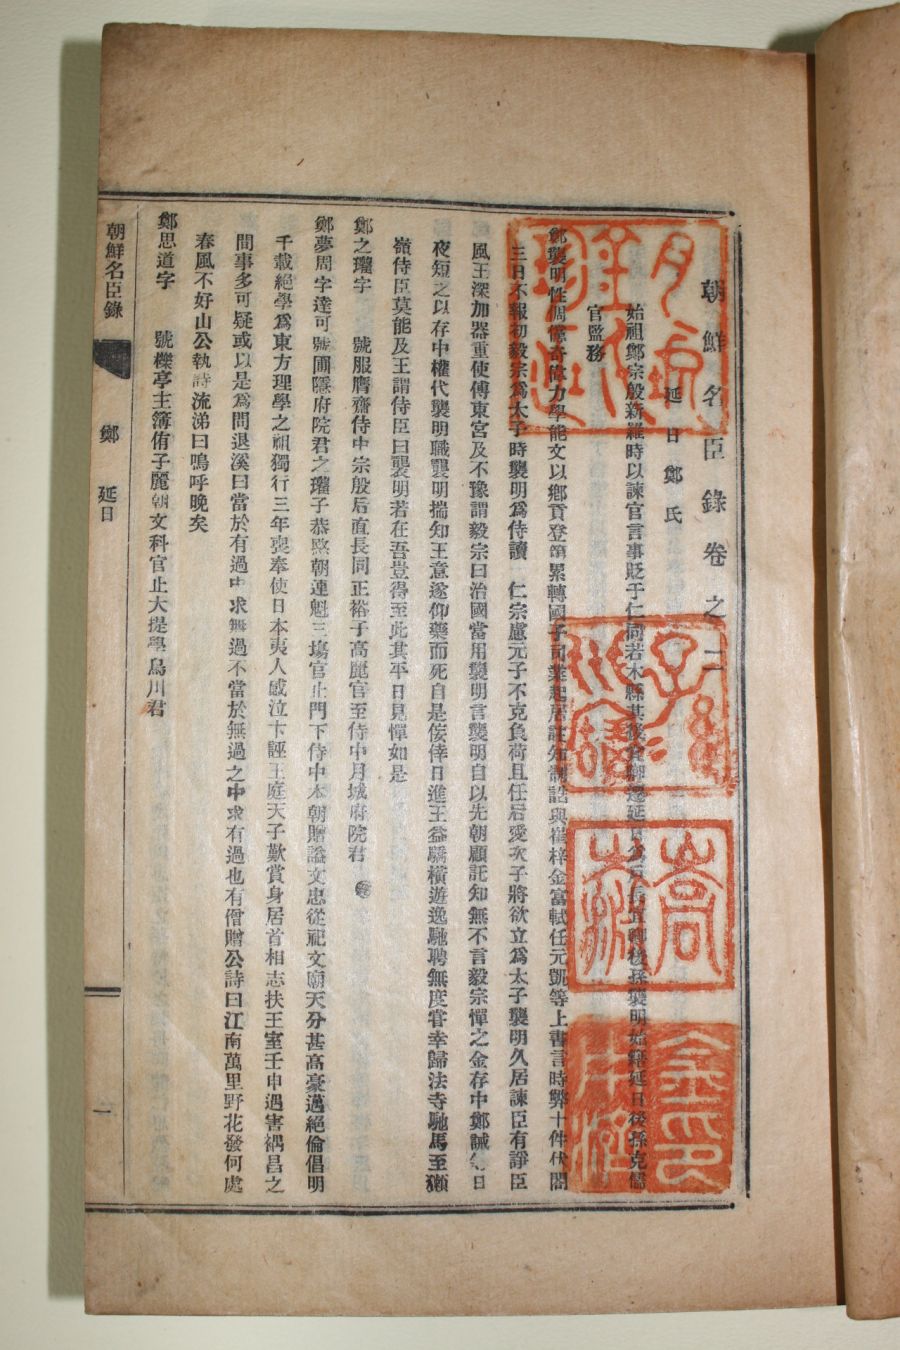 朝鮮名臣錄卷之二
延日鄭氏
始祖鄭宗殷新羅時以諫官言事貶于仁同若木縣其後宜卿遷延日爲戶長宜卿後孫襲明始籍延日後孫克儒
官監務
鄭襲明性倜儻奇偉力學能文以鄉貢登第累轉國子司業起居注知制誥與崔梓金富軾任元凱等上書言時弊十件伏閤
三日不報初毅宗爲太子時襲明爲侍讀 仁宗慮元子不克負荷且任后愛次子將欲立爲太子襲明久居諫臣有諍臣
風王深加器重使傅東宮及不豫謂毅宗曰治國當用襲明言襲明自以先朝顧託知無不言毅宗憚之金存中鄭諴 日
夜短之以存中權代襲明職襲明揣知王意遂仰藥而死自是佞倖日進王益驕橫遊逸馳聘無度甞幸歸法寺馳馬至獺
嶺侍臣莫能及王謂侍臣曰襲明若在吾豈得至此其平日見憚如是
鄭之瓘字 號服膺齋侍中宗殷后直長同正裕子高麗官至侍中月城府院君
鄭夢周字達可號圃隱府院君之瓘子恭愍朝連魁三塲官止門下侍中本朝贈謚文忠從祀文廟天分甚高豪邁絕倫倡明
千載絕學爲東方理學之祖獨行三年喪奉使日本夷人感泣卞誣王庭天子歎賞身居首相志扶王室壬申遇害禑昌之
間事多可疑或以是爲問退溪曰當於有過中求無過不當於無過之中求有過也有僧贈公詩曰江南萬里野花發何處
春風不好山公執詩流涕曰嗚呼晚矣
鄭思道字 號櫟亭主簿侑子麗朝文科官止大提學烏川君
朝鮮名臣錄 鄭 延日 一